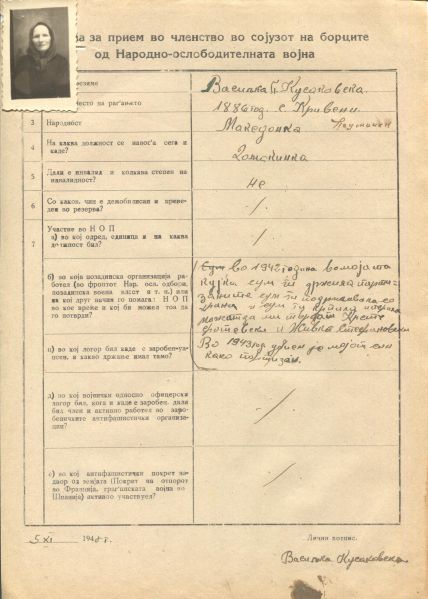 ва за прием во членство во сојузот на борците
од Народно-ослободителната војна
презиме
Василка Кусаковска.
место на раѓањето
1886 год. с. Кривени
3 Народност
Македонка
4 На каква должност се наоѓа сега и
каде?
Домаќинка
5 Дали е инвалид и колкава степен на
инвалидност?
Не
6 Со каков. чин е демобилисан и преве-
ден во резерва?
/.
7 Участие во Н О П
а) во кој одред, единица и на каква
должност бил?
/.
б) во која позадинска организација ра-
ботел (во фронтот Нар. осл. одбори,
позадинска воена власт и т. н.) или
на кој друг начин го помагал Н О П
во кое време и кој би можел тоа да
го потврди?
Сум во 1942 година во мојата
куќа сум ги држила парти-
заните сум ги подржавала со
храна и сум ту
можат да ми тврдат Крсте
и Живко Стефановски
Во 1943 год убиен је мојот син
како партизан.
в) во кој логор бил каде е заробен-уа-
псен, и какво држание имал тамо?
д) во кој војнички односно офицерски
логор бил, кога и каде е заробен, дали
бил член и активно работел во заро-
бениччките антифашистички организа-
ции?
/
е) во кој антифашистички покрет на-
двор од земјата (Покрет на отпорот
во Франција, граѓанската војна во
Шпанија) активно участвуел?
/
5 XI 1948 г.
Лични потпис.
Василка Кусаковска